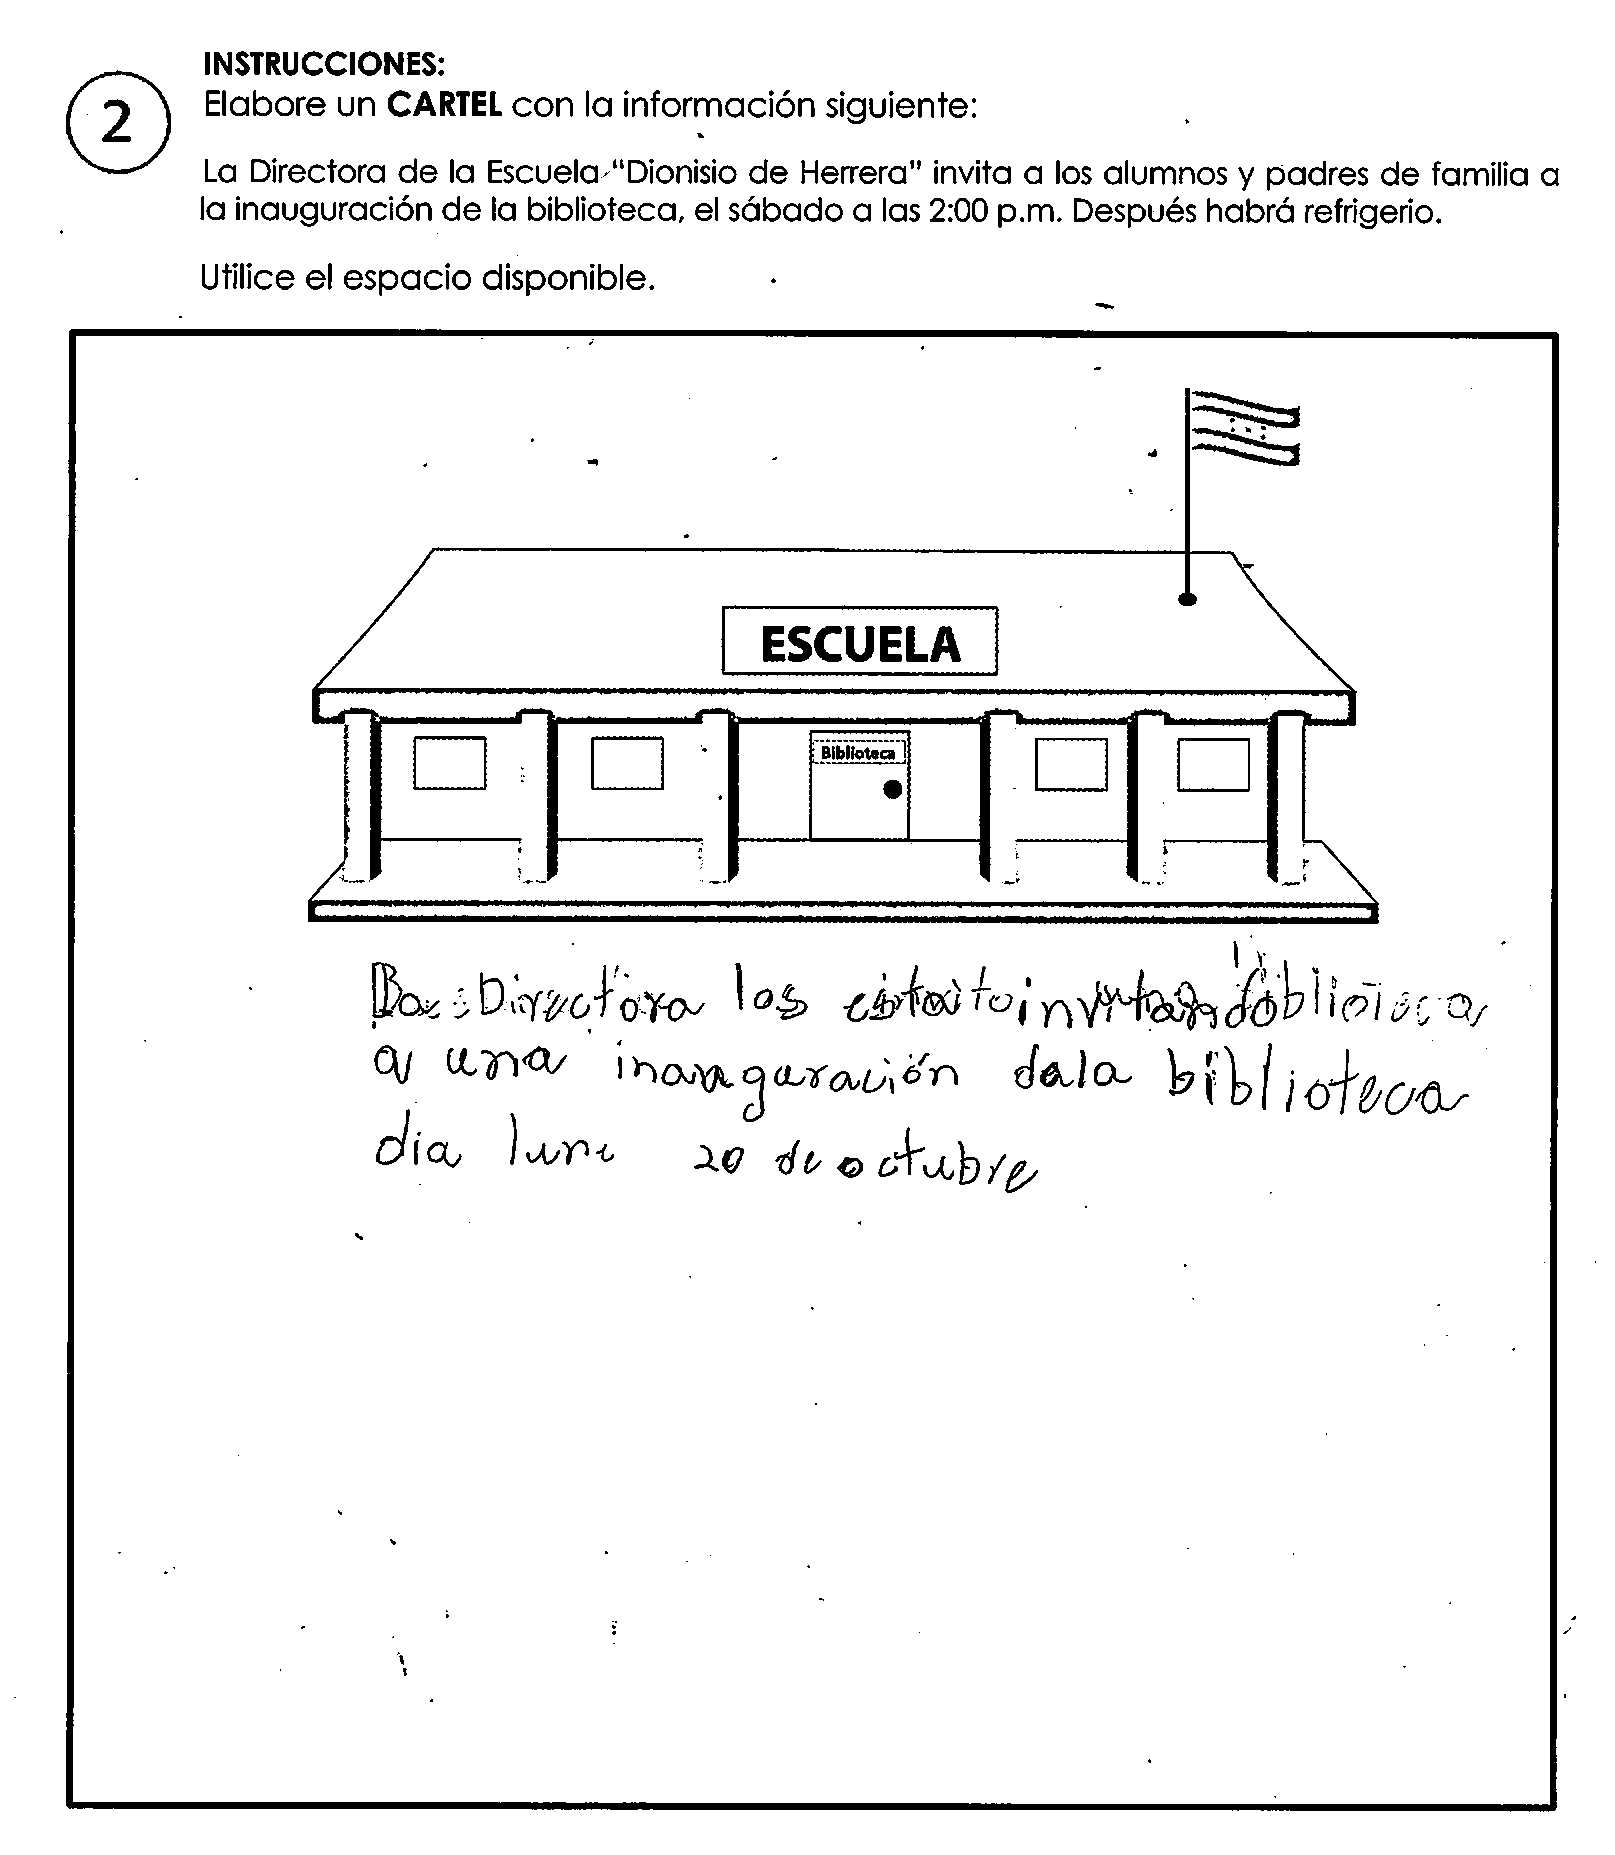 INSTRUCCIONES:
2
Elabore un CARTEL con la información siguiente:
La Directora de la Escuela "Dionisio de Herrera" invita a los alumnos y padres de familia a
la inauguración de la biblioteca, el sábado a las 2:00 p.m. Después habrá refrigerio.
Utilice el espacio disponible.
ESCUELA
Biblioteca
Directora los
a una inauguración dela biblioteca
dia lune 20 de octubre